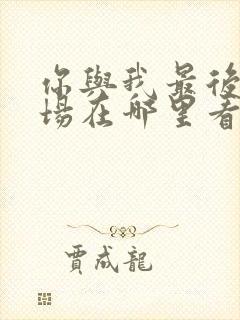 你與我最後
場在哪里看
賈成龍